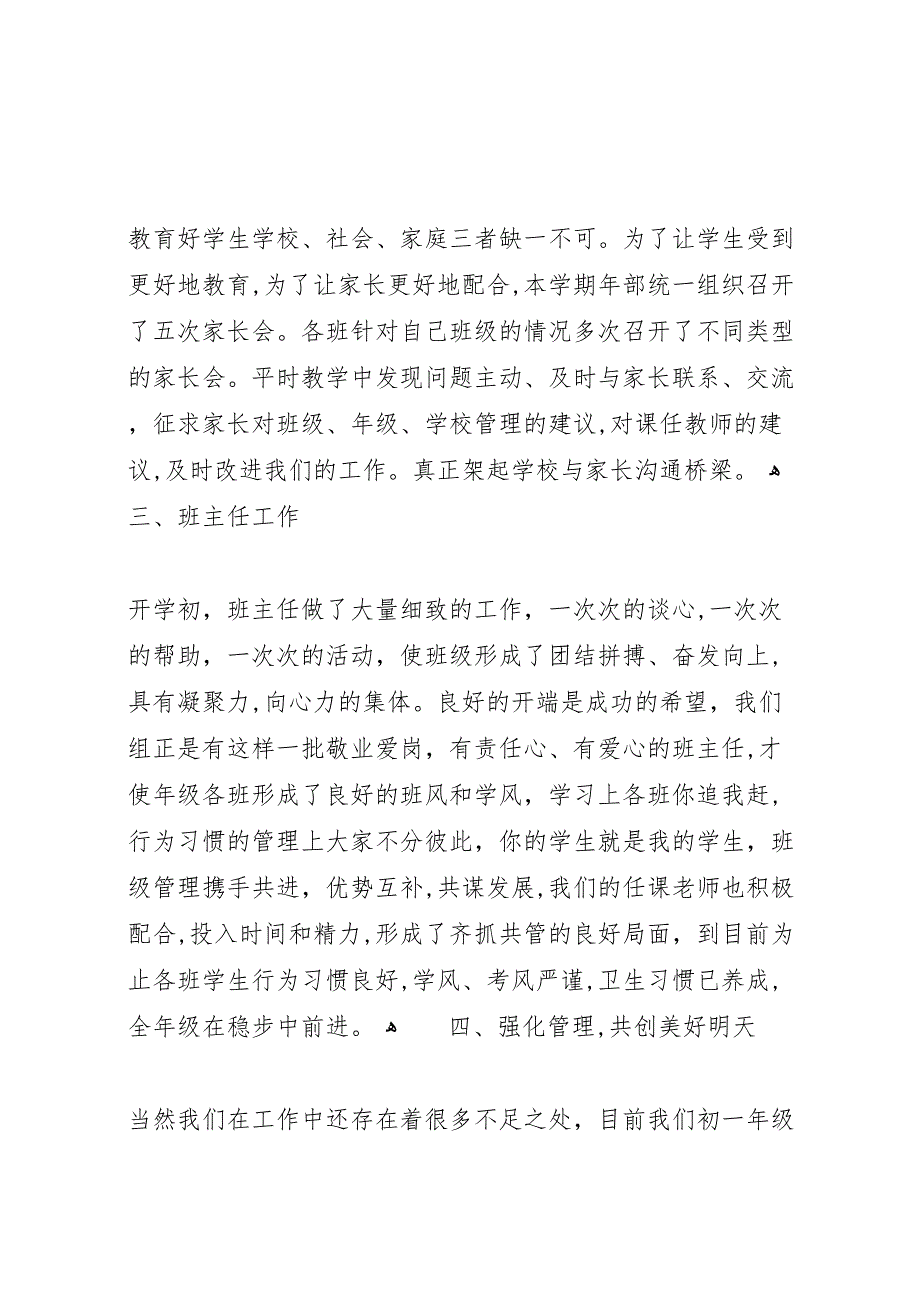 教育好学生学校、社会、家庭三者缺一不可。为了让学生受到
更好地教育,为了让家长更好地配合,本学期年部统一组织召开
了五次家长会。各班针对自己班级的情况多次召开了不同类型
的家长会。平时教学中发现问题主动、及时与家长联系、交流
，征求家长对班级、年级、学校管理的建议,对课任教师的建
议,及时改进我们的工作。真正架起学校与家长沟通桥梁。 ﻫ
三、班主任工作
开学初，班主任做了大量细致的工作，一次次的谈心,一次次
的帮助，一次次的活动，使班级形成了团结拼搏、奋发向上,
具有凝聚力,向心力的集体。良好的开端是成功的希望，我们
组正是有这样一批敬业爱岗，有责任心、有爱心的班主任,才
使年级各班形成了良好的班风和学风，学习上各班你追我赶,
行为习惯的管理上大家不分彼此，你的学生就是我的学生，班
级管理携手共进，优势互补,共谋发展,我们的任课老师也积极
配合,投入时间和精力,形成了齐抓共管的良好局面，到目前为
止各班学生行为习惯良好,学风、考风严谨,卫生习惯已养成,
全年级在稳步中前进。 ﻫ 四、强化管理,共创美好明天
当然我们在工作中还存在着很多不足之处，目前我们初一年级